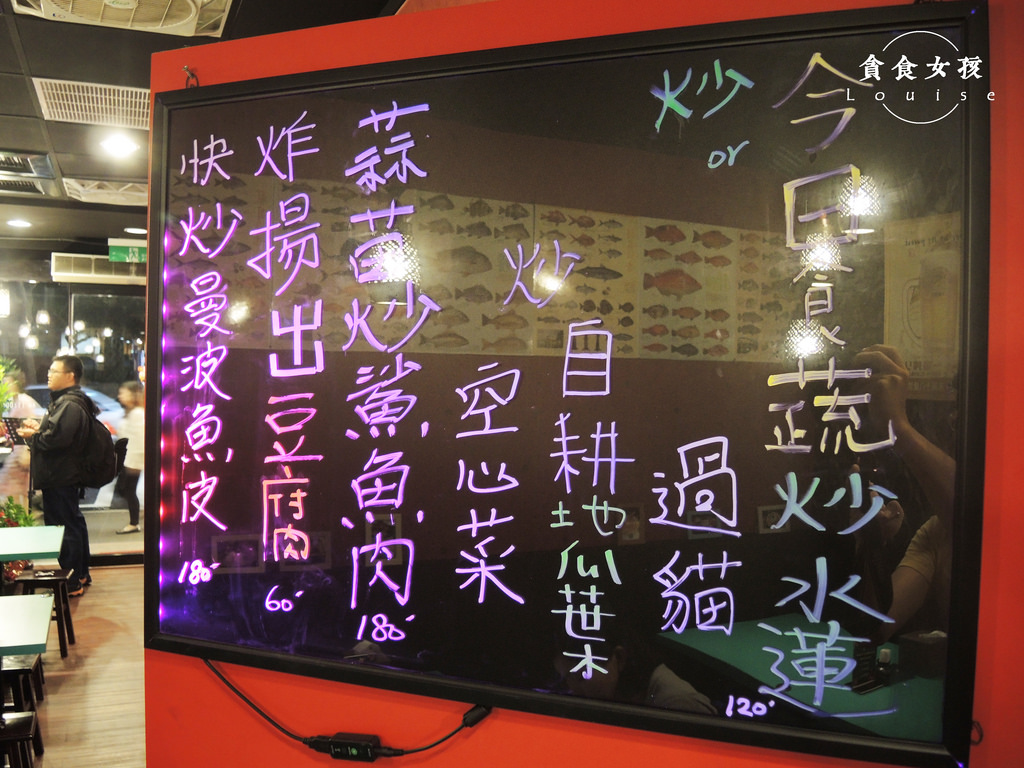 貪食女孩
Louise
今日春蔬炒水蓮
120
炒
or
過貓
炒
自耕地瓜葉
空心菜
蒜苗炒鯊魚肉
180
炸揚出豆腐
60
快炒曼波魚皮
180